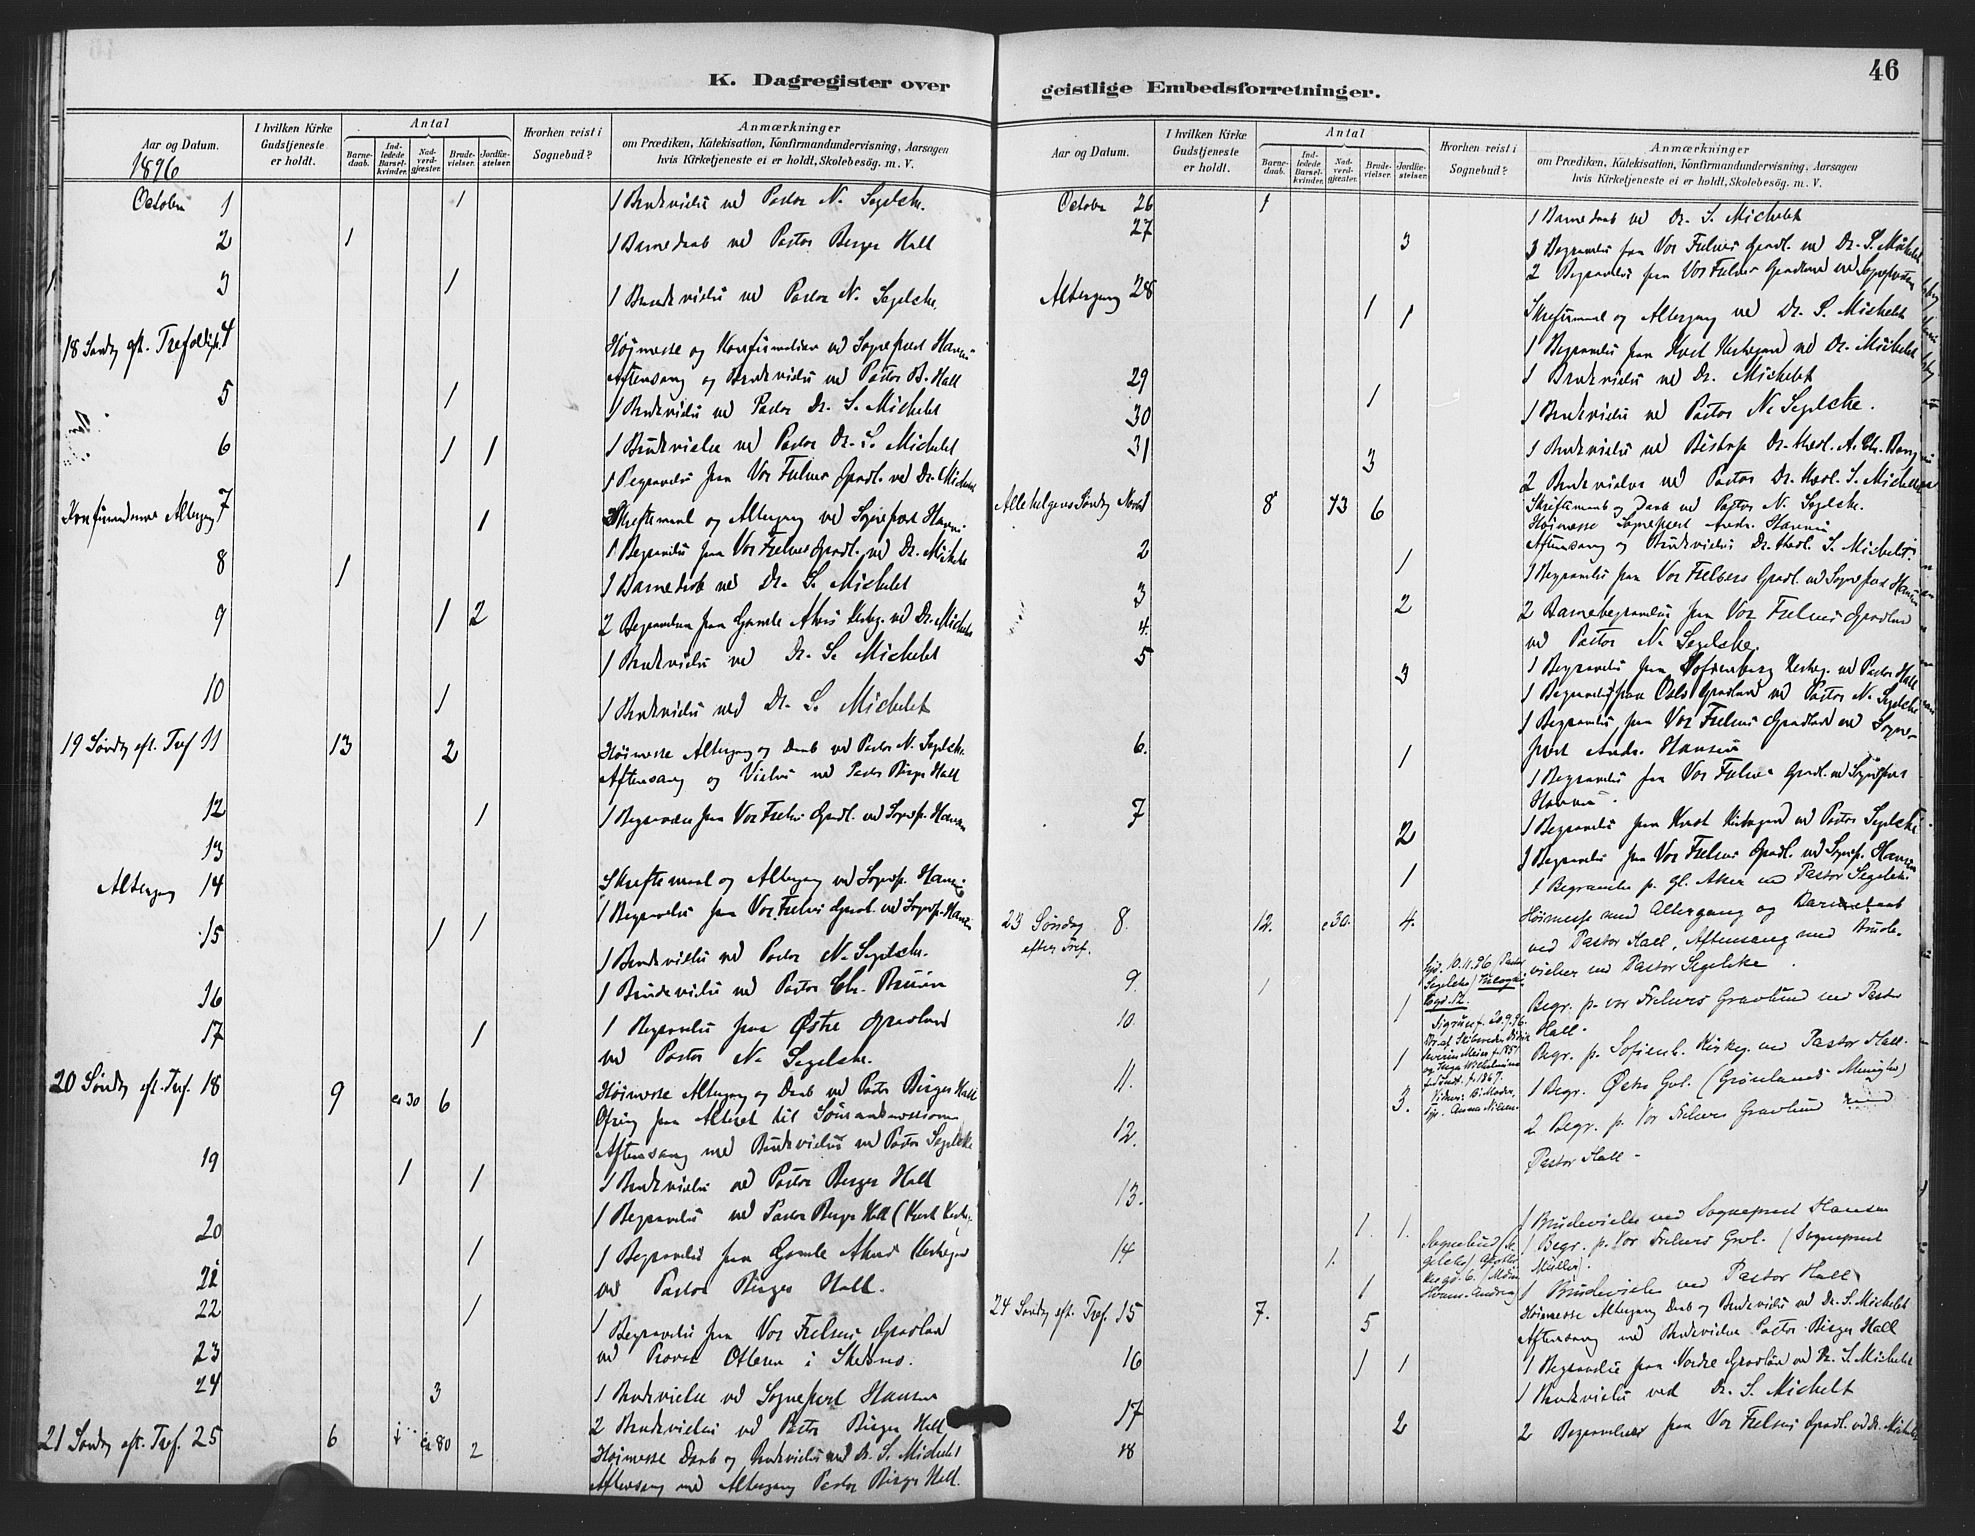 K. Dagregister over
Aar og Datum.
1896
I hvilken Kirke Gudstjeneste er holdt.
Antal
Barnedaab.
Indledede Barselkvinder.
Nadverdgjæster.
Brudevielser.
Jordfæstelser.
Hvorhen reist i Sognebud?
Anmærkninger
om Prædiken, Katekisation, Konfirmandundervisning, Aarsagen
hvis Kirketjeneste ei er holdt, Skolebesøg. m. V.
October 1 1 1 Brudevielse ved Pastor N. Segelcke.
2 1 1 Barnedaab ved Pastor Birger Hall
3 1 1 Brudevielse ved Pastor N. Segelcke.
18 Søndag eft. Trefoldigh. 4 Højmesse og Konfirmation ved Sognepræst Hansen
Aftensang og Brudevielse ved Pastor B. Hall
5 1 1 Brudevielse ved Pastor Dr. S. Michelet
6 1 1 1 Brudevielse ved Pastor Dr. S. Michelet
1 Begravelse fra Vor Frelsers Gravl. ved Dr. Michelet
Konfirmanternes Altergang 7 1 Skriftemaal og Altergang ved Sognepræst Hansen
1 Begravelse fra Vor Frelsers Gravl. ved Dr. Michelet
8 1 1 Barnedaab ved Dr. S. Michelet
9 1 2 2 Begravelser fra Gamle Akers Kirkeg. ved Dr. Michelet
1 Brudevielse ved Dr. S. Michelet
10 1 1 Brudevielse ved Dr. S. Michelet
19 Søndag eft. Tref 11 13 2 Højmesse Altergang og Daab ved Pastor N. Segelcke
Aftensang og Vielse ved Pastor Birger Hall
12 1 1 Begravelse fra Vor Frelsers Gravl. ved Sognepr. Hansen
13
Altergang 14 Skriftemaal og Altergang ved Sognepr. Hansen
1 Begravelse fra Vor Frelsers Gravl. ved Sognepr. Hansen
15 1 1 1 Brudevielse ved Pastor N. Segelcke.
1 Brudevielse ved Pastor Chr. Bruun
16 1 Begravelse fra Østre Gravlund
17 1 ved Pastor N. Segelcke.
20 Søndag eft. Tref. 18 9 ca 30 6 Højmesse Altergang og Daab ved Pastor Birger Hall
Ofring fra Alteret til Sømandsmissionen
Aftensang med Brudevielse ved Pastor Segelcke
19 1 1 1 Brudevielse ved Pastor Birger Hall
1 Begravelse ved Pastor Birger Hall (
20 1 1 Begravelse fra Gamle Akers Kirkegaard
21 ved Pastor Birger Hall.
22 1 1 Begravelse fra Vor Frelsers Gravlund
23 ved Provst Ottesen i
24 3 1 Brudevielse ved Sognepræst Hansen
2 Brudevielser ved Pastor Birger Hall
21 Søndag eft. Tref. 25 6 ca 80 2 Højmesse Daab og Brudevielse ved Dr. S. Michelet
Aftensang med Altergang Pastor Birger Hall.
geistlige Embedsforretninger.
46
Aar og Datum.
I hvilken Kirke Gudstjeneste er holdt.
Antal
Barnedaab.
Indledede Barselkvinder.
Nadverdgjæster.
Brudevielser.
Jordfæstelser.
Hvorhen reist i Sognebud?
Anmærkninger
om Prædiken, Katekisation, Konfirmandundervisning, Aarsagen
hvis Kirketjeneste ei er holdt, Skolebesøg. m. V.
October 26 1 1 Barnedaab ved Dr. S. Michelet
27 3 3 Begravelser fra Vor Frelsers Gravl. ved Dr. S. Michelet
2 Begravelser fra Vor Frelsers Gravlund ved Sognepræsten
Altergang 28 1 1 Skriftemaal og Altergang ved Dr. S. Michelet
1 Begravelse fra Kirkegaard ved Dr. Michelet
29 1 Brudevielse ved Dr. Michelet
30 1 1 Brudevielse ved Pastor N. Segelcke.
31 3 1 Brudevielse ved Biskop Dr. theol. A. Chr. Bang
2 Brudevielser ved Pastor Dr. theol. S. Michelet
Allehelgens Søndag Novbr 1 8 73 6 Skriftemaal og Daab ved Pastor N. Segelcke.
Højmesse Sognepræst Andr. Hansen
Aftensang og Brudevielse Dr. theol. S. Michelet
2 1 1 Begravelse fra Vor Frelsers Gravl. ved Sognepræst Hansen
3 2 2 Barnebegravelser fra Vor Frelsers Gravlund
4. ved Pastor N. Segelcke.
5 3 1 Begravelse fra Sofienberg Kirkeg. ved Pastor Hall
1 Begravelse fra Oslo Gravlund ved Pastor N. Segelcke
1 Begravelse fra Vor Frelsers Gravlund ved Sogne-
6. 1 præst Andr. Hansen
1 Begravelse fra Vor Frelsers Gravl. ved Sognepræst
Hansen.
7 2 1 Begravelse fra Kirkegaard ved Pastor Segelcke
1 Begravelse fra Vor Frelsers Gravl. ved Sognepr. Hansen
1 1 Begravelse p. Gl. Aker ved Pastor Segelcke
23 Søndag efter Tref. 8. 12. c 30. 4. Høimesse med Altergang og Barnedaab
ved Pastor Hall, Aftensang med Brude-
vielser ved Pastor Segelcke.
9. 1 1 Begr. p. vor Frelsers Gravlund ved Pastor
Hall.
10. 1 Begr. p. Sofienb. Kirkeg. ved Pastor Hall.
11. 3. 1 Begr. Østre Gvl. (Grønlands Menighed)
2 Begr. p. Vor Frelsers Gravlund ved
12. Pastor Hall -
13. 1. 1. 1 Brudevielse ved Sognepræst Hansen
1 Begr. p. Vor Frelsers Grvl. (Sognepræst
Müller).
14 1. 1 1 Brudevielse ved Pastor Hall
24 Søndag eft. Tref. 15 7. 5 Højmesse Altergang Daab og Brudevielse ved Dr. S. Michelet
Aftensang med Brudevielse Pastor Birger Hall
16 1 1 1 Begravelse fra Nordre Gravlund ved Dr. S. Michelet
1 Brudevielse ved Dr. S. Michelet
17 2 2 Begravelser fra Vor Frelsers Gravl. ved Dr. Michelet
18